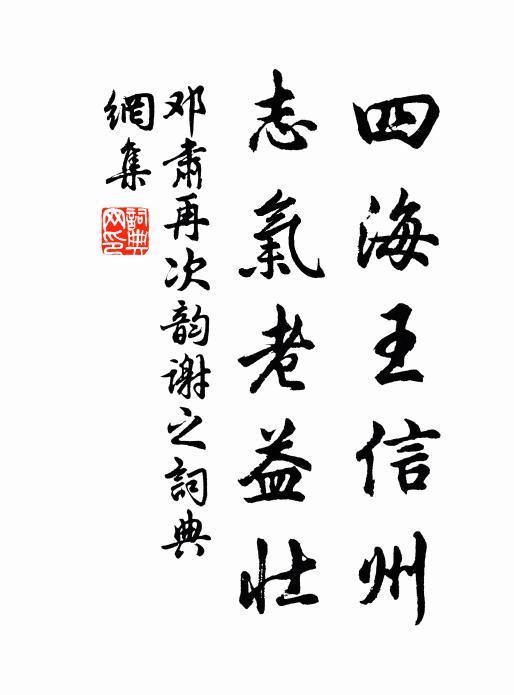 四海王信州
志氣老益壯
邓肅再次韵谢之詞典
網集
詞典網印